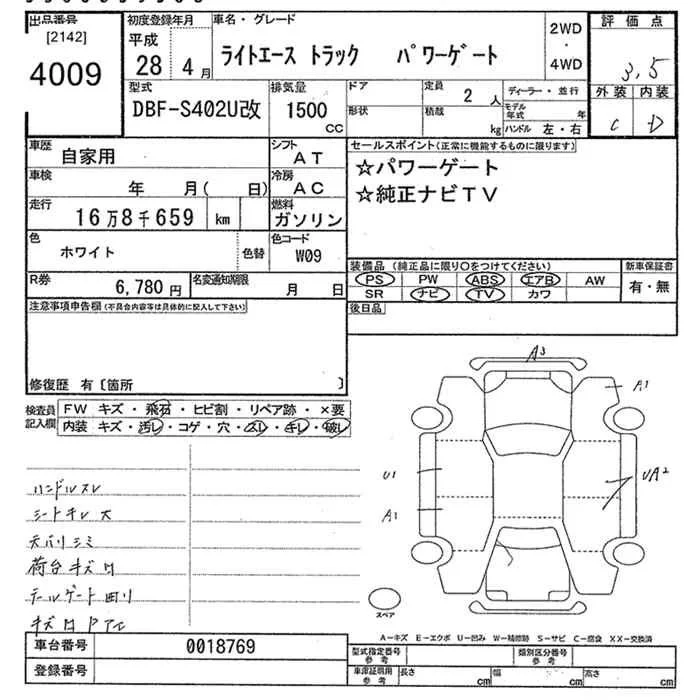 出品番号
[2142]
4009
初度登録年月
平成
28 4月
車名・グレード
ライトエース トラック パワーゲート
2WD
・
4WD
評価点
3.5
外装 内装
C D
型式
DBF-S402U改
排気量
1500
CC
ドア
形状
定員
2人
積載
kg
ディーラー・並行
モデル年式 年
ハンドル 左・右
車歴
自家用
シフト
AT
車検
年 月( 日)
冷房
AC
走行
16万8千659 km
燃料
ガソリン
色
ホワイト
色替
色コード
W09
R券
6,780円
名変通知期限
月 日
セールスポイント(正常に機能するものに限ります)
☆パワーゲート
☆純正ナビTV
装備品 (純正品に限り○をつけてください)
新車保証書
PS PW ABS エアB AW
SR ナビ TV カワ
有・無
後日品
注意事項申告欄(不具合内容等は具体的に記入して下さい)
修復歴 有〔箇所 〕
検査員
記入欄
FW キズ・飛石・ヒビ割・リペア跡・×要
内装 キズ・汚レ・コゲ・穴・スレ・キレ・破レ
ハンドルスレ
シートキレ大
天バリシミ
荷台キズ凹
テールゲート曲り
キズ凹
A3
A1
U1
A1
UA2
スペア
A―キズ E―エクボ U―凹み W―補修跡 S―サビ C―腐食 XX―交換済
車台番号
0018769
登録番号
型式指定番号
参考
類別区分番号
参考
車庫証明用
参考
長さ cm 幅 cm 高さ cm